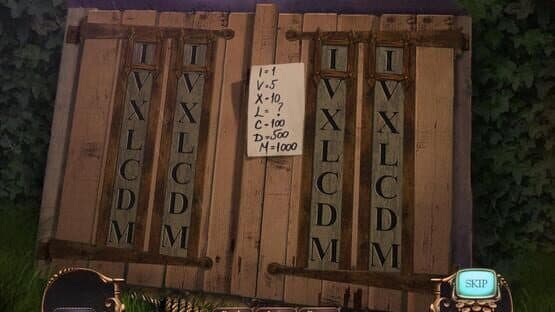 I I I I
V V V V
X X X X
L L L L
C C C C
D D D D
M M M M
I = 1
V = 5
X = 10
L = ?
C = 100
D = 500
M = 1000
SKIP